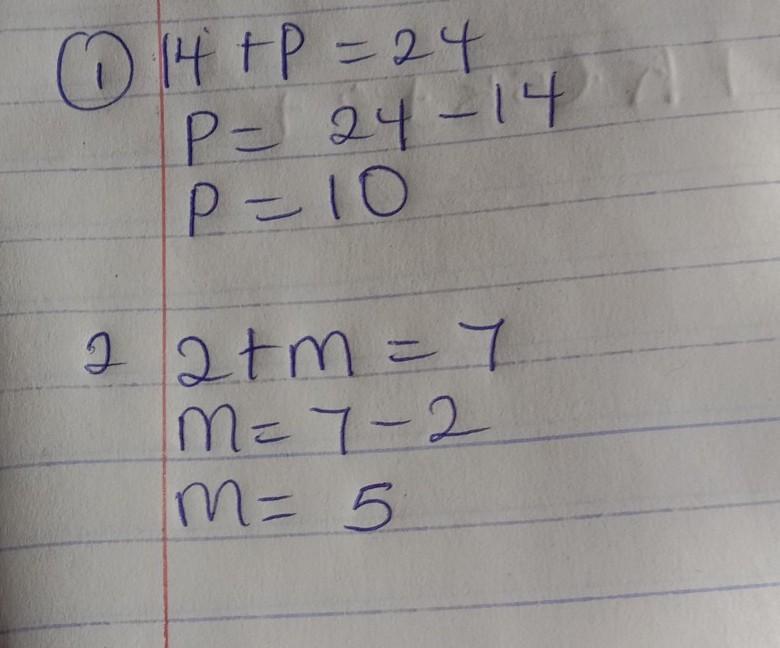 ① 14 + P = 24
P = 24 - 14
P = 10
2 2 + m = 7
m = 7 - 2
m = 5